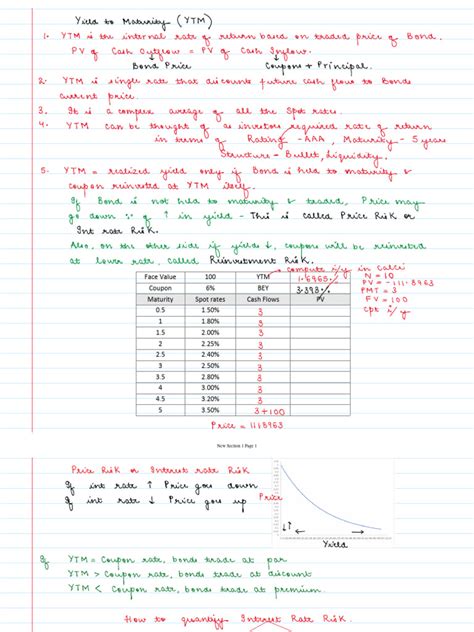 Yield to Maturity (YTM)
1. YTM is the internal rate of return based on traded price of Bond.
PV of Cash Outflow = PV of Cash Inflow.
Bond Price Coupons + Principal.
2. YTM is single rate that discounts future cash flows to Bonds
current price.
3. It is a complex average of all the Spot rates.
4. YTM can be thought of as investors required rate of return
in terms of Rating - AAA, Maturity - 5 years
Structure - Bullet, liquidity.
5. YTM = realized yield only if Bond is held to maturity &
coupon reinvested at YTM itself.
If Bond is not held to maturity & traded, Price may
go down ∵ of ↑ in yield - This is called Price Risk or
Int rate Risk.
Also, on the other side if yields ↓, coupons will be reinvested
at lower rate, called Reinvestment Risk.
compute i/y in calci
N = 10
PV = -111.8963
PMT = 3
FV = 100
cpt i/y
Face Value 100 YTM 1.6963.%
Coupon 6% BEY 3.393.%
Maturity Spot rates Cash Flows PV
0.5 1.50% 3
1 1.80% 3
1.5 2.00% 3
2 2.25% 3
2.5 2.40% 3
3 2.50% 3
3.5 2.80% 3
4 3.00% 3
4.5 3.20% 3
5 3.50% 3+100
Price = 1118963
New Section 1 Page 1
Price Risk or Interest rate Risk
If int rate ↑ Price goes down
If int rate ↓ Price goes up
Price
Yield
If YTM = Coupon rate, bonds trade at par
YTM > Coupon rate, bonds trade at discount
YTM < Coupon rate, bonds trade at premium.
How to quantify Interest Rate Risk.